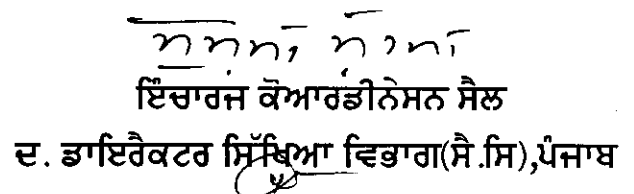 ਇੰਚਾਰਜ ਕੋਆਰਡੀਨੇਸਨ ਸੈਲ
ਦ. ਡਾਇਰੈਕਟਰ ਸਿੱਖਿਆ ਵਿਭਾਗ(ਸੈ.ਸਿ),ਪੰਜਾਬ